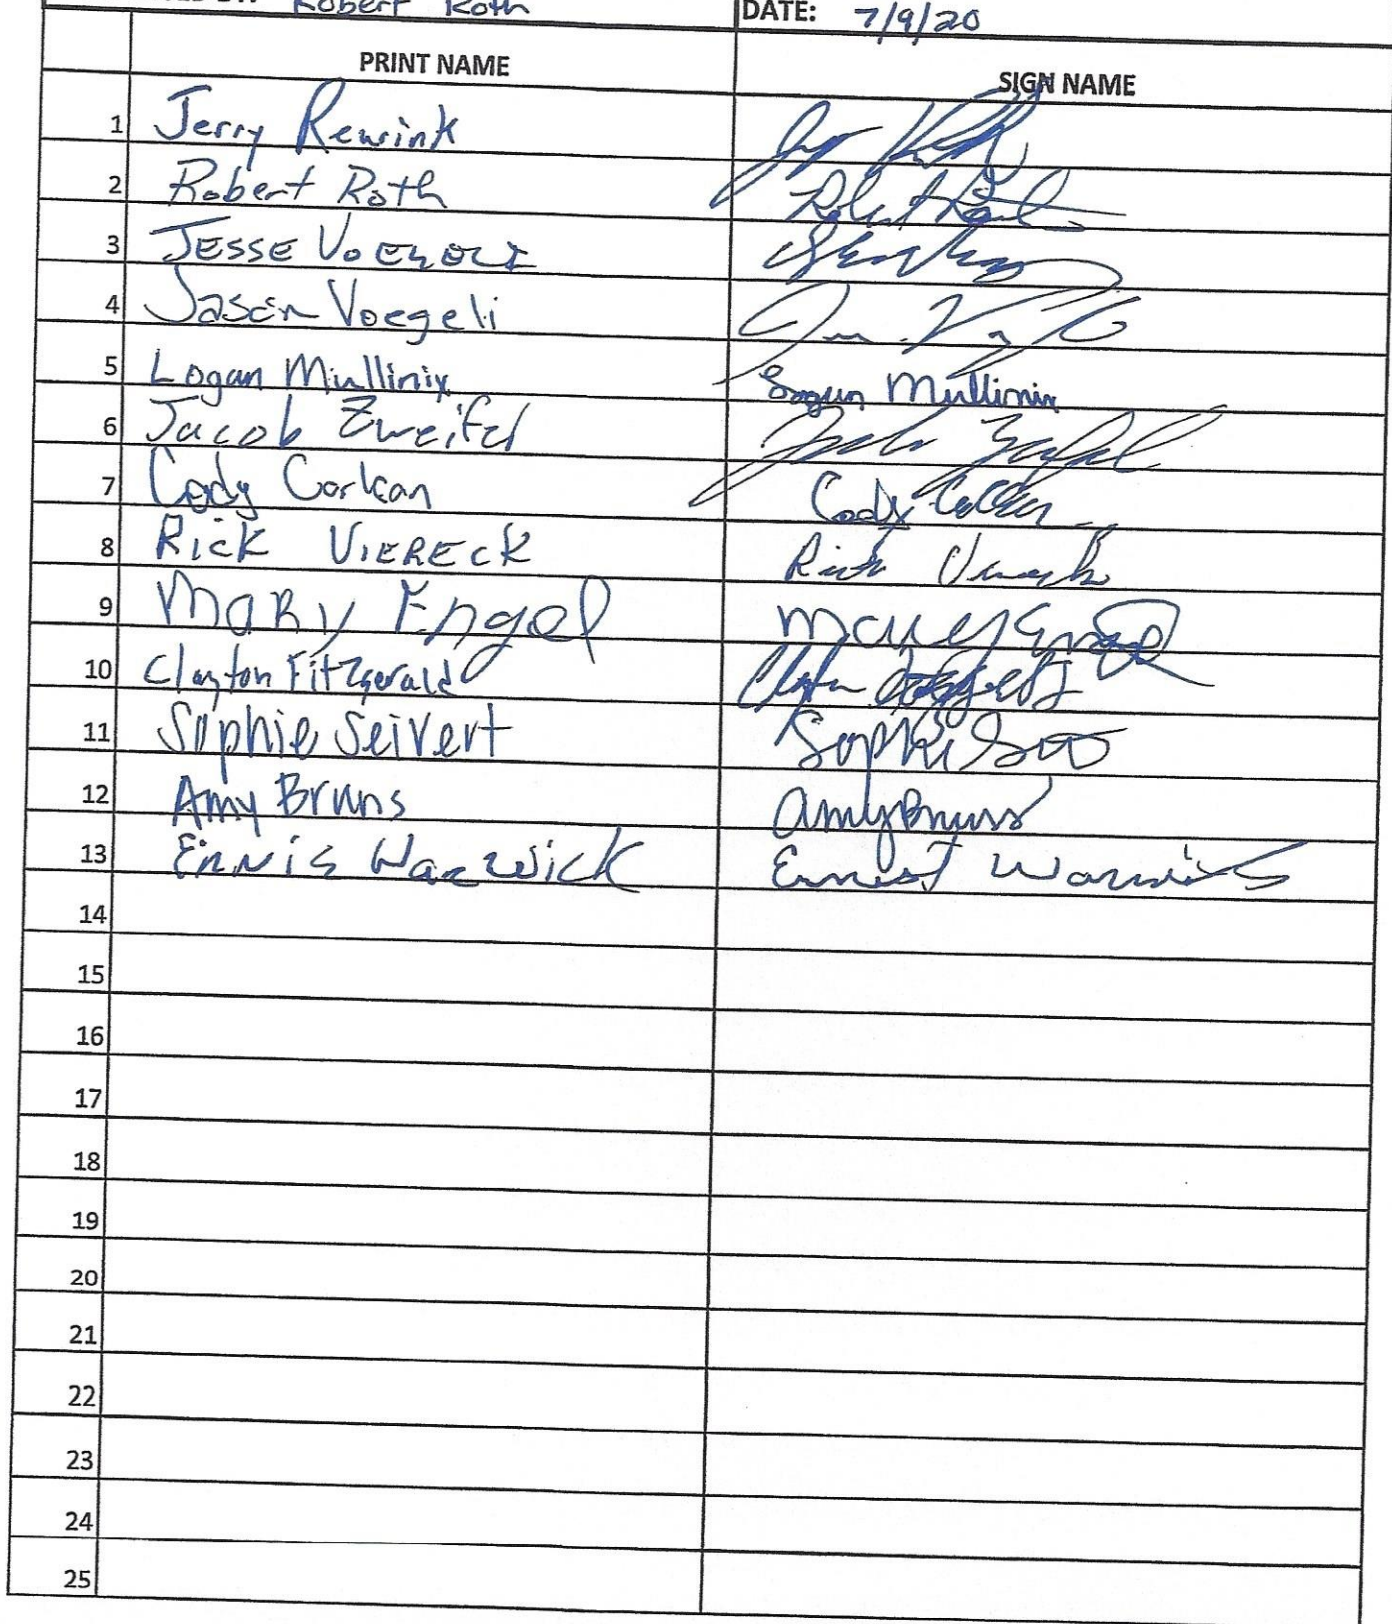 Robert Roth DATE: 7/9/20
PRINT NAME SIGN NAME
1 Jerry Rewink
2 Robert Roth Robert Roth
3 JESSE VOEGELI
4 Jason Voegeli
5 Logan Mullinix Logan Mullinix
6 Jacob Zweifel
7 Cody Corkan Cody
8 Rick VIERECK Rick
9 MaRy Engel Mary Engel
10 Clayton FitZgerald
11 Sophie Seivert Sophie
12 Amy Bruns Amy Bruns
13 Ennis Warwick Ernest Warwick
14
15
16
17
18
19
20
21
22
23
24
25